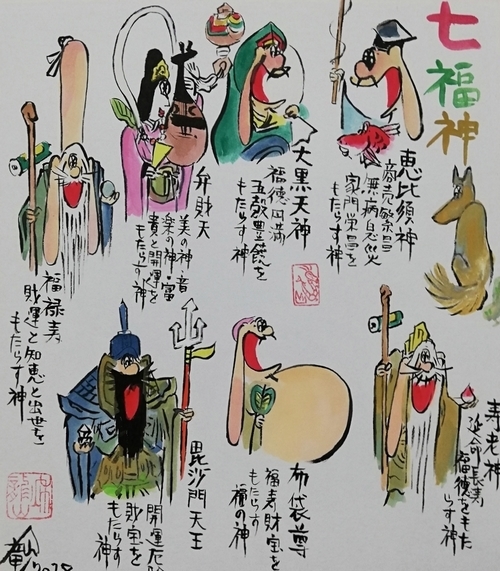 七福神
恵比須神
商売繁昌
無病息災
家門栄昌を
もたらす神
大黒天神
福徳円満
五穀豊饒を
もたらす神
弁財天
美の神・音
楽の神・富
貴と開運を
もたらす神
福禄寿
財運と知恵と出世を
もたらす神
寿老神
延命長寿
福徳をもた
らす神
布袋尊
福寿財宝を
もたらす
福の神
毘沙門天王
開運厄除
財宝を
もたらす
神